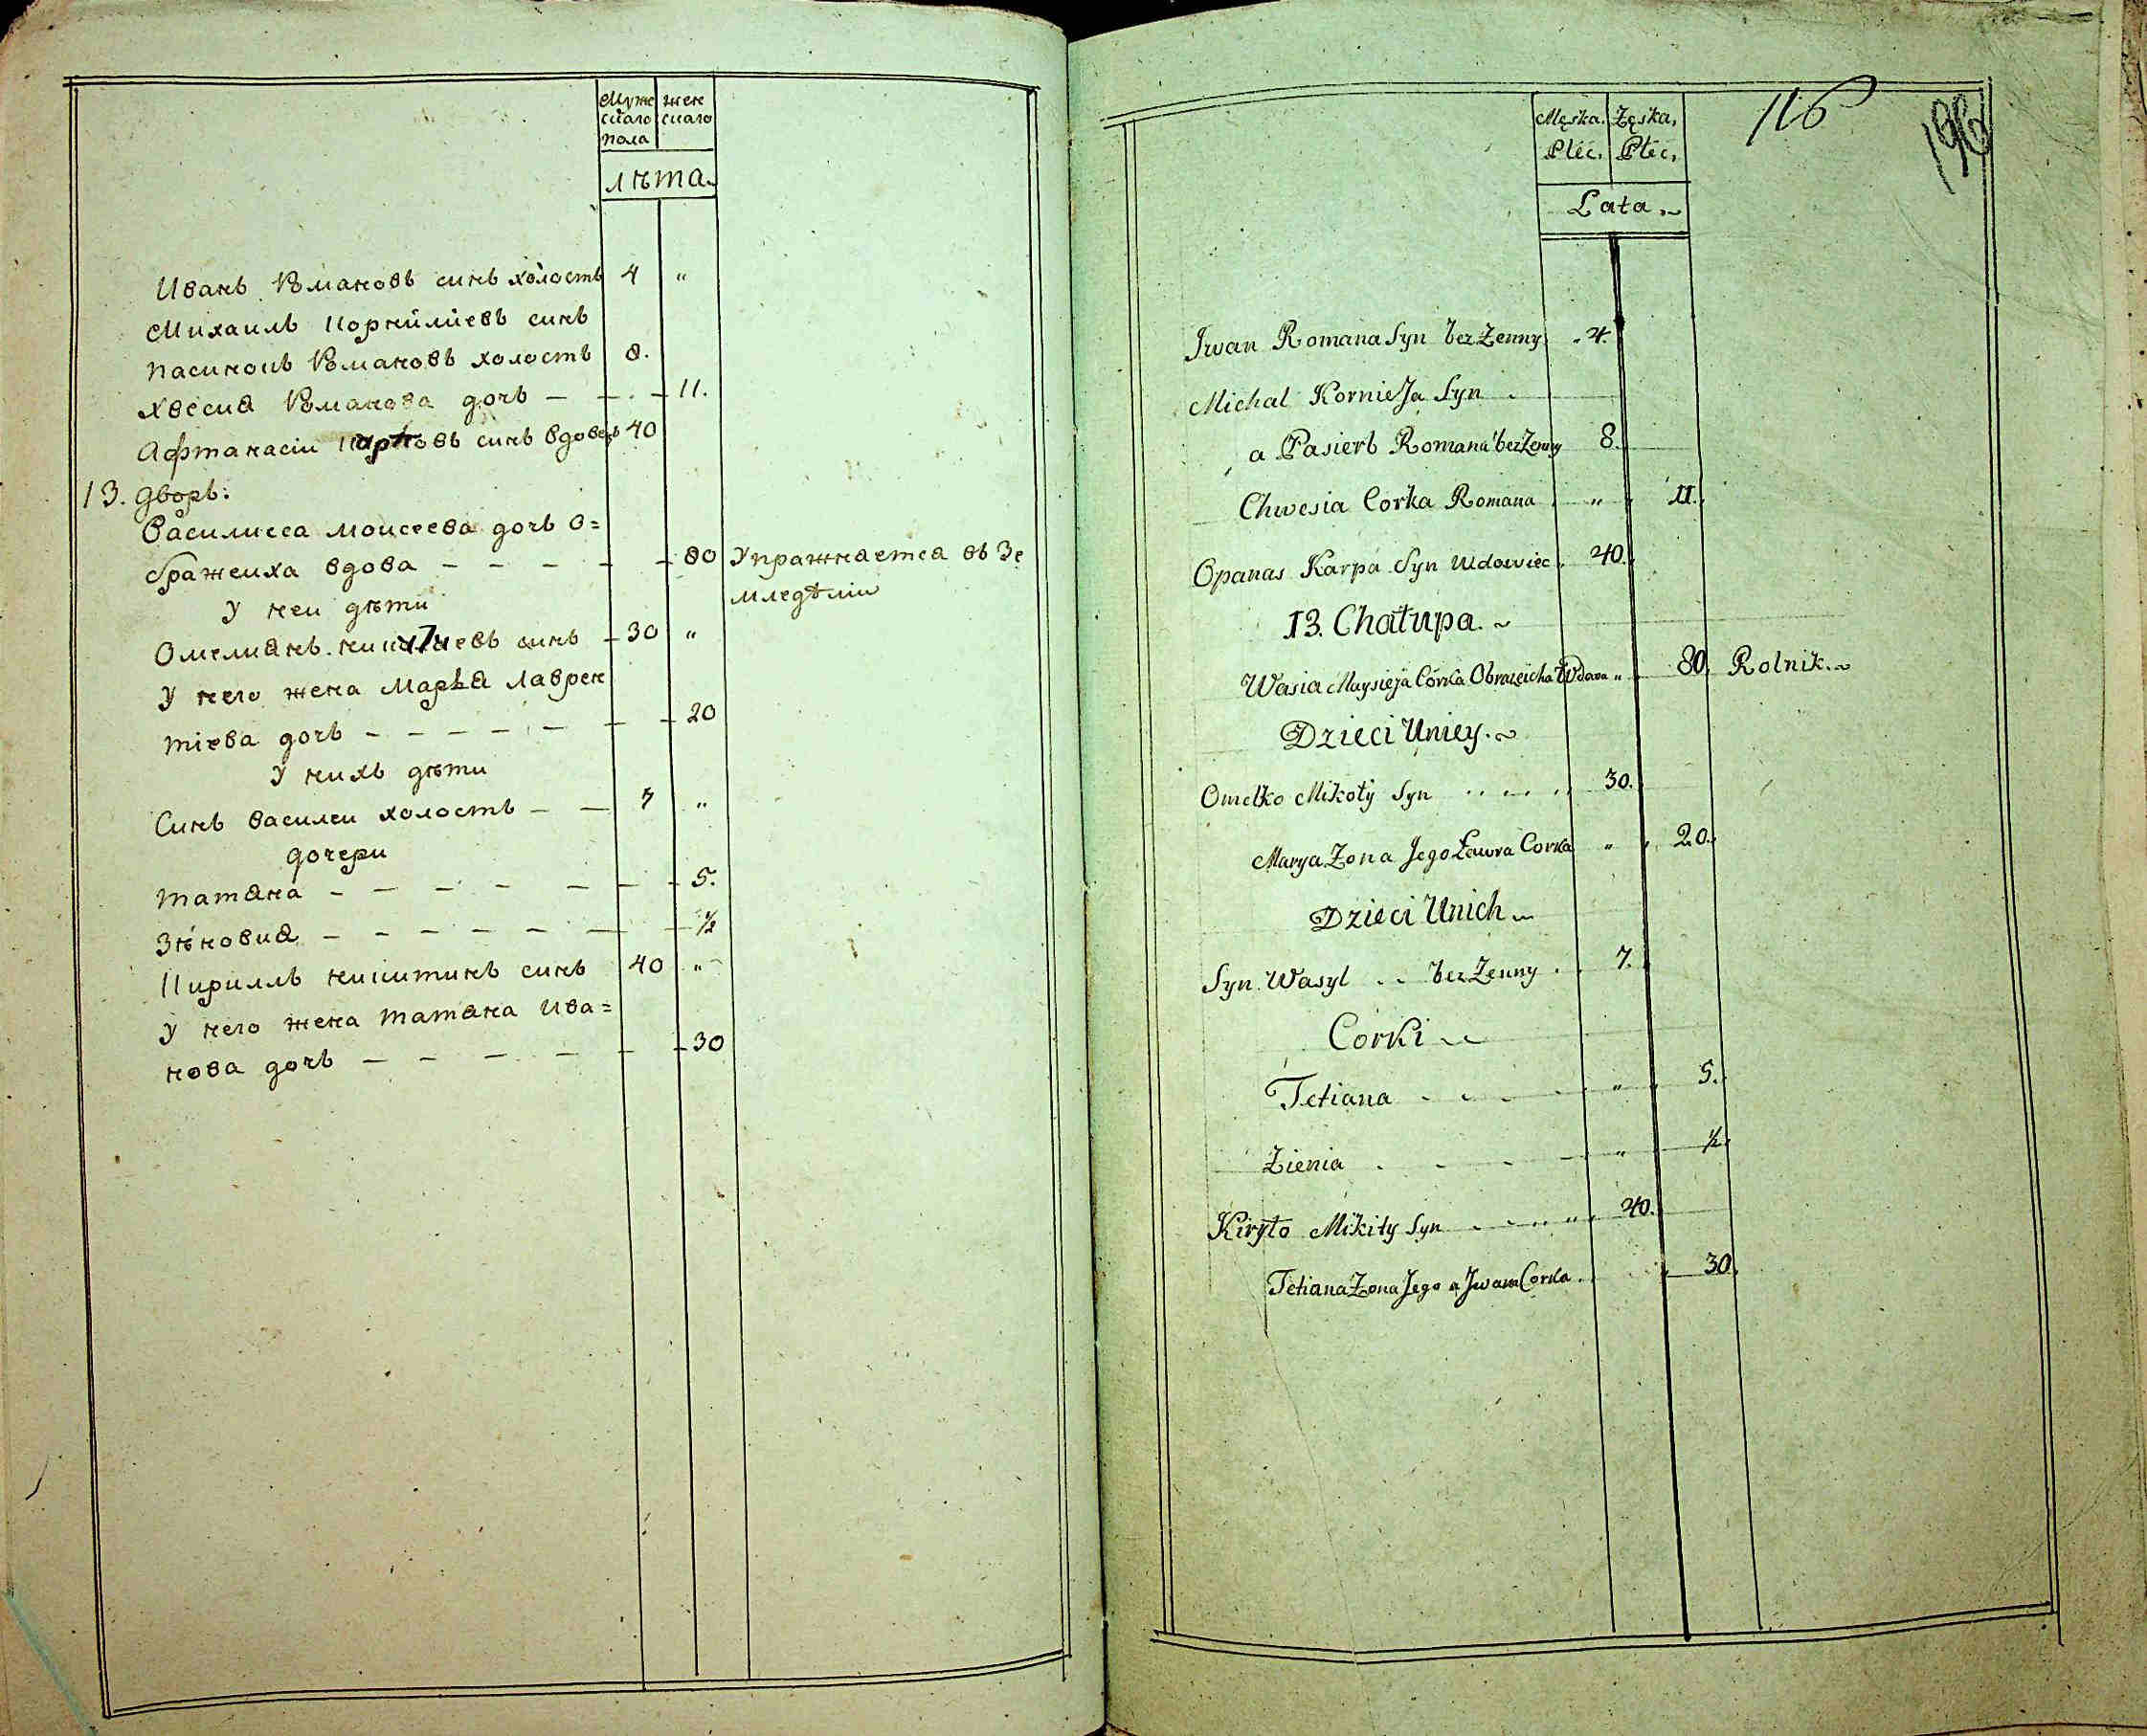 Муже
скаго
пола
жен
скаго
лѣта.
Иванъ Романовъ синъ холостъ 4 "
Михаилъ Корнилиевъ синъ
пасинокъ Романовъ холостъ 8.
Хвесиа Романова дочъ — — — 11.
Афтанасіи Карповъ синъ вдовецъ 40
13. дворъ:
Василисса Моисеева дочъ О=
бражеиха вдова — — — — — 80 Упражнается въ Зе
мледѣліи
У неи дѣти
Омелианъ синъ — 30 "
У него жена Марьа Лаврен
тіева дочъ — — — — — — — 20
У нихъ дѣти
Синъ Василеи холостъ — — 7 "
дочери
Татиана — — — — — — — 5.
Зѣновиа — — — — — — — ½
Кириллъ Никитинъ синъ 40 "
У него жена Татиана Ива=
нова дочъ — — — — — — 30
116
196
Męska.
Płéc.
Zęska.
Płéc.
Lata.
Iwan Romana Syn bez Zenny 4.
Michal Kornieja Syn
a Pasierb Romana bez Zenny 8.
Chwesia Corka Romana " 11.
Opanas Karpa Syn Wdowiec 40.
13. Chałupa.
Wasia Maysieja Córka Obrazeicha Wdowa " 80. Rolnik.
Dzieci Uniey.
Omelko Mikoły Syn 30.
Marya Zona Jego Ławra Corka " 20.
Dzieci Unich
Syn Wasyl bez Zenny 7.
Corki
Tetiana " 5.
Zienia " ½.
Kiryło Mikity Syn 40.
Tetiana Zona Jego a Iwana Corka 30.